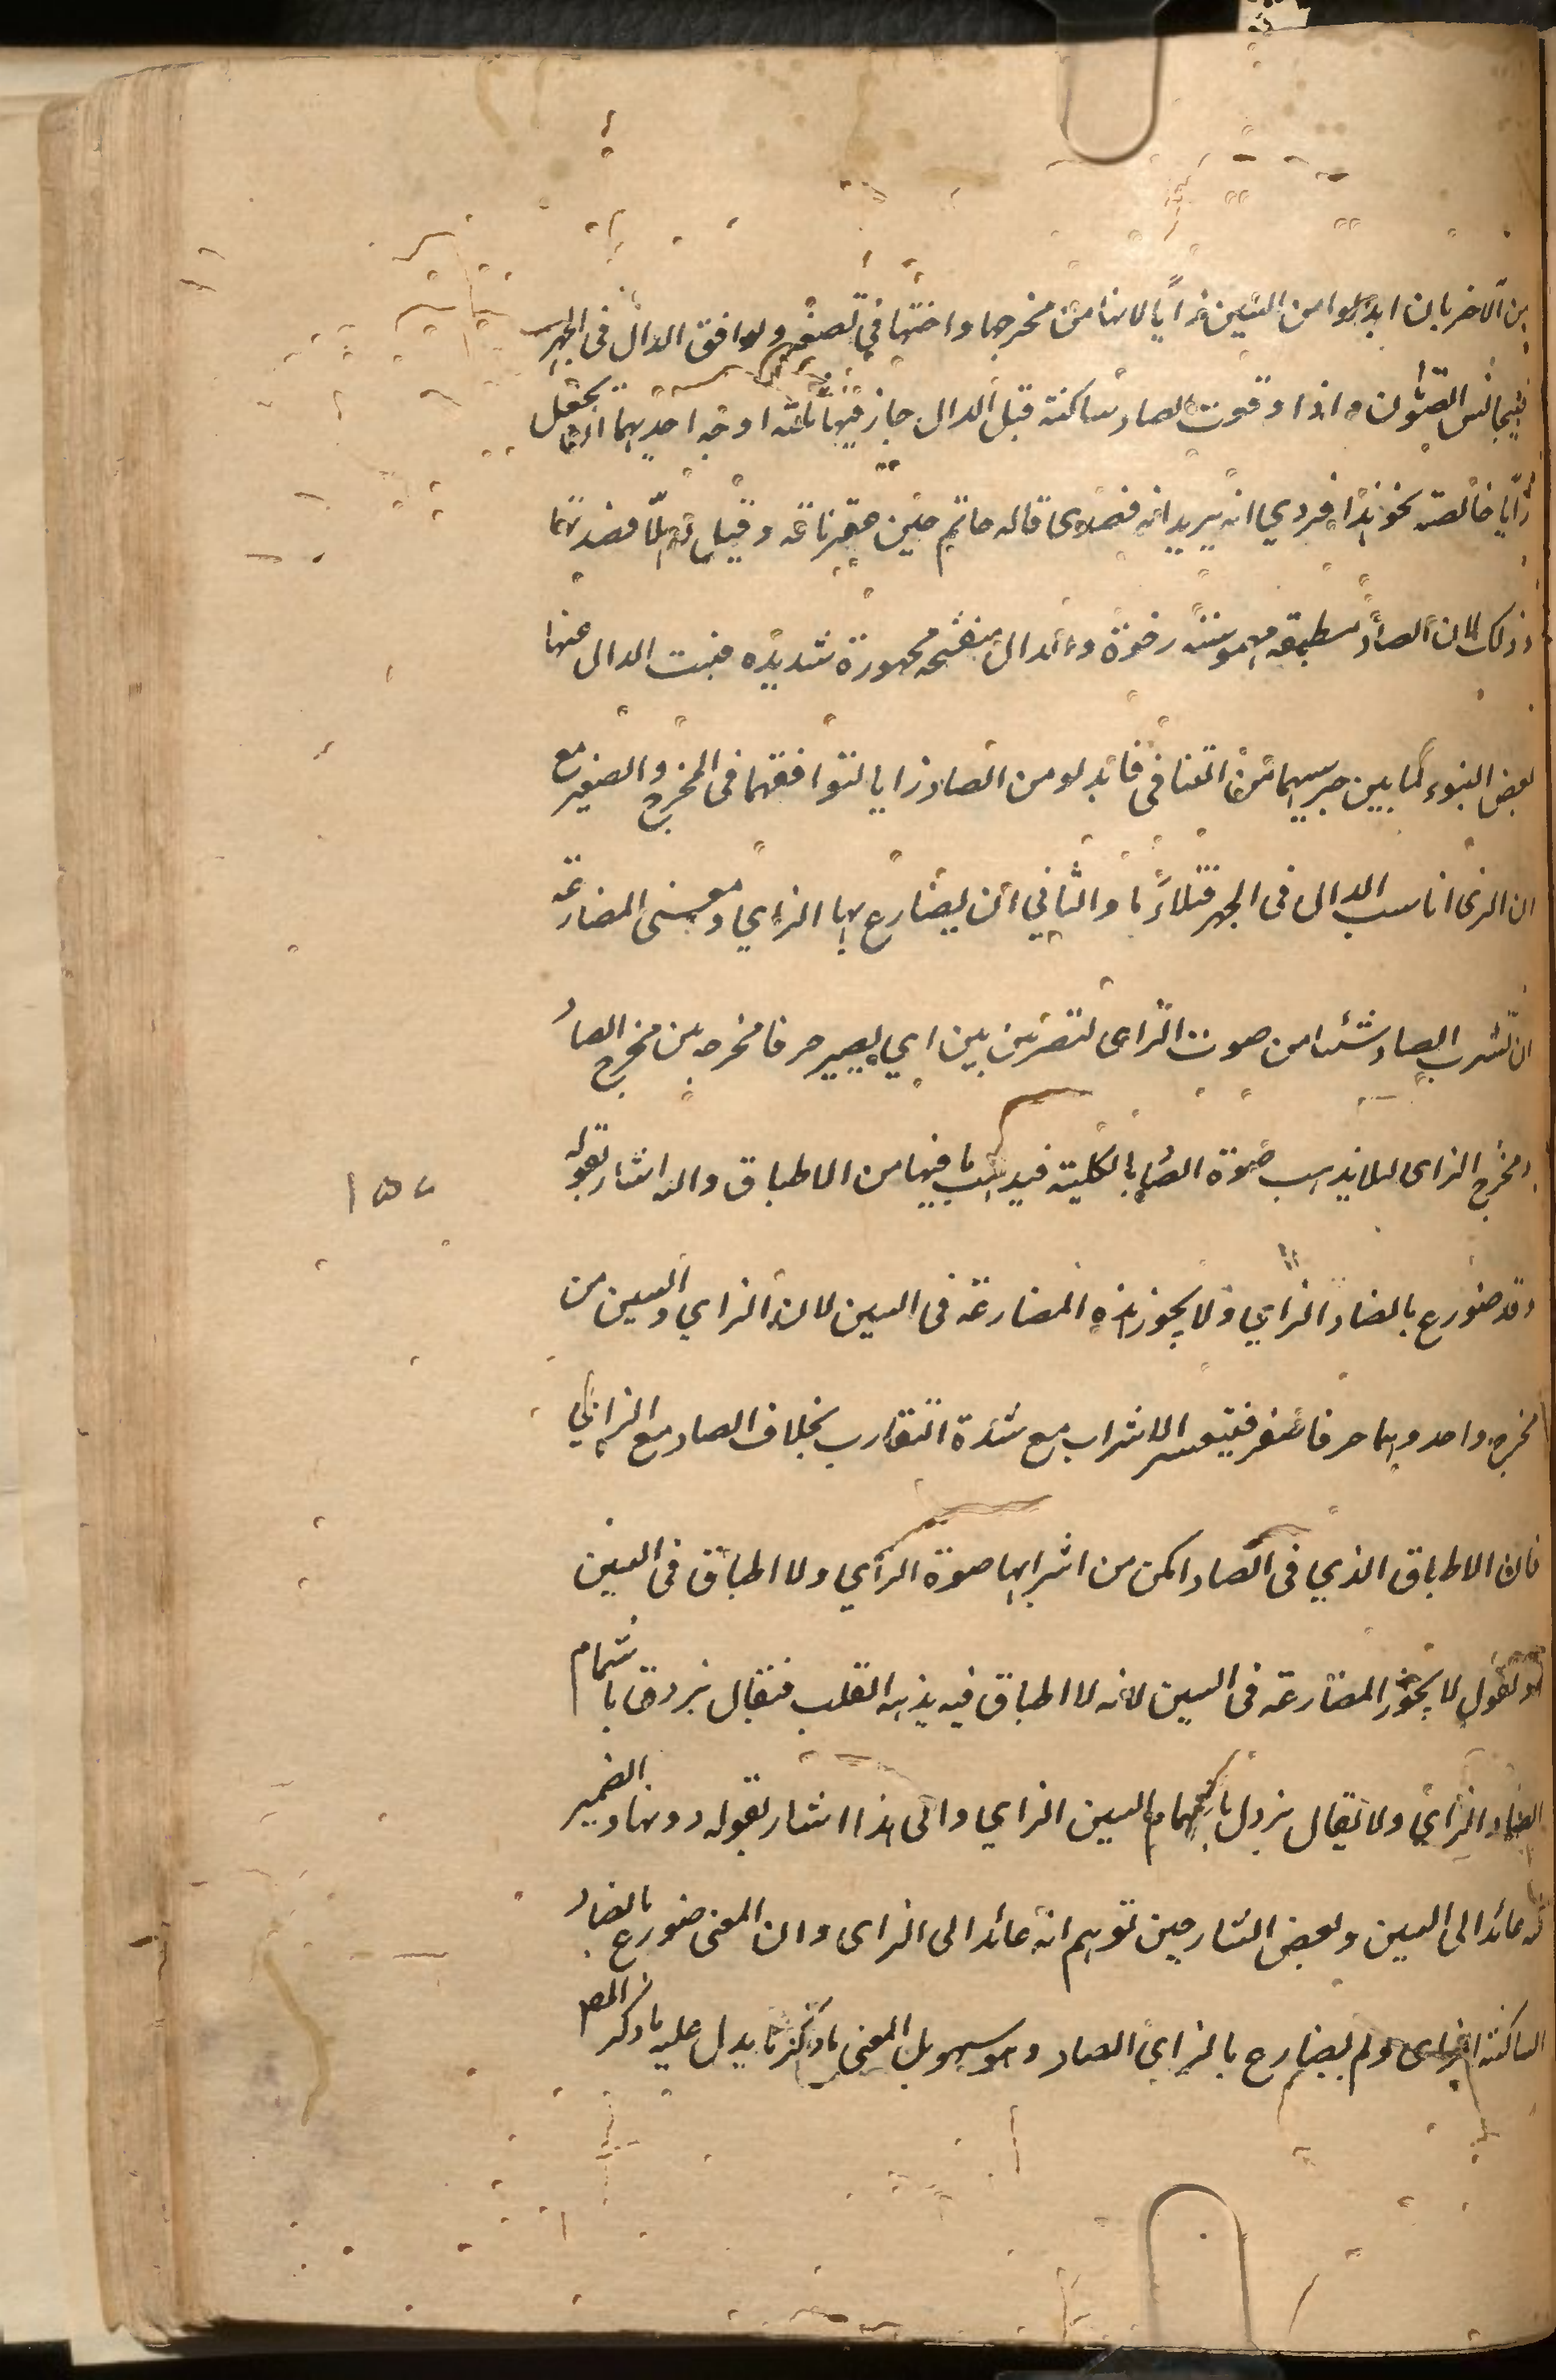 من الآخر بان ابدلوا من السين زايا لانها من مخرجها واختها في الصفير ولوافق الدال فى الجهر
فيتجانس الصوتان واذا وقعت الصاد ساكنة قبل الدال جاز فيها ثلثة اوجه احديهما ان تجعل
زايا خالصة نحو هذا فزدي انه يريد انه فصدى قاله حاتم حين عقر ناقة وقيل له هلا فصدتها
وذلك لان الصاد مطبقة مهموسة رخوة والدال منفتحة مجهورة شديدة فنبت الدال عنها
بعض النبوء لما بين جرسيهما من التنافى فابدلو من الصاد زايا لتوافقهما فى المخرج والصفير مع
ان الزى اناسب الدال فى الجهر فتلاءما والثاني ان يضارع بها الزاي ومعنى المضارعة
ان تشرب الصاد شئا من صوت الزاى لتصر بين بين اي يصير حرفا مخرجه بين مخرج الصاد
ومخرج الزاى لئلا يذهب صوة الصاد بالكلية فيذهب ما فيها من الاطباق واليه اشار بقوله
١٥٧
وقد ضورع بالصاد الزاي ولا يجوز هذه المضارعة فى السين لان الزاي والسين من
مخرج واحد وهما حرفا صفر فيتعسر الاشراب مع شدة التقارب بخلاف الصاد مع الزاي
فان الاطباق الذي فى الصاد امكن من اشرابها صوة الزاي ولا اطباق فى السين
او لقول لا يجوز المضارعة فى السين لانه لا اطباق فيه يذهبه القلب فيقال يزدق باشمام
الصاد الزاي ولا يقال يزدل باشمام السين الزاي والى هذا اشار بقوله دونها والضمير
فيه عائد الى السين وبعض الشارحين توهم انه عائد الى الزاى وان المعنى ضورع بالصاد
الساكنة الزاى ولم يضارع بالزاي الصاد وهو سهو بل المعنى ما ذكرنا يدل عليه ما ذكر المص